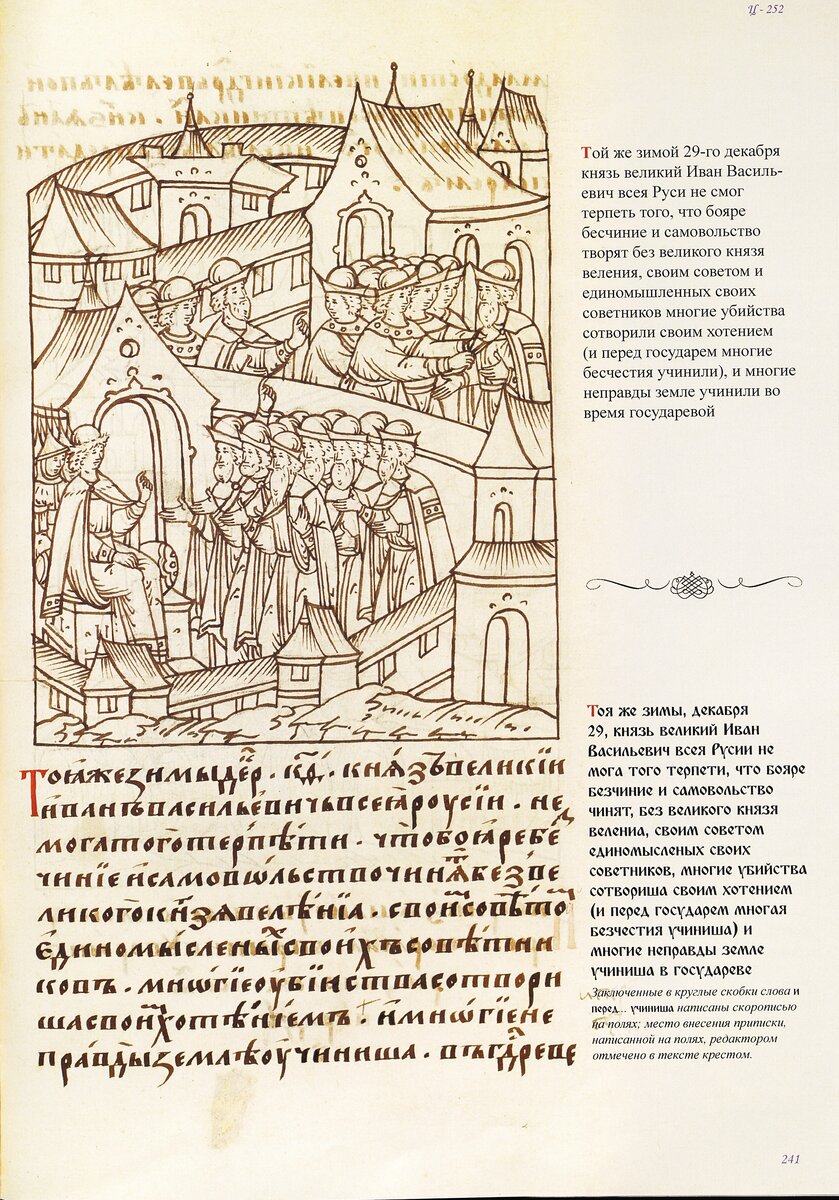 Ц - 252
Той же зимой 29-го декабря
князь великий Иван Василь-
евич всея Руси не смог
терпеть того, что бояре
бесчиние и самовольство
творят без великого князя
веления, своим советом и
единомышленных своих
советников многие убийства
сотворили своим хотением
(и перед государем многие
бесчестия учинили), и многие
неправды земле учинили во
время государевой
Тоя же зимы, декабря
29, князь великий Иван
Васильевич всея Русии не
мога того терпети, что бояре
безчиние и самовольство
чинят, без великого князя
велениа, своим советом
единомысленых своих
советников, многие убийства
сотвориша своим хотением
(и перед государем многая
безчестия учиниша) и
многие неправды земле
учиниша в государеве
Заключенные в круглые скобки слова и
перед... учиниша написаны скорописью
на полях; место внесения приписки,
написанной на полях, редактором
отмечено в тексте крестом.
Тоꙗжезимыдек҃р . к҃ѳ . кнѧзьвеликїи
иванъвасильевичьвсеꙗроусїи . не
могатоготерпѣти . чтобоꙗребеꙁ
чинїеисамовѡльствочинѧтбезве
ликогокнѧзѧвелѣнїа . своимсовѣто
единомысленыхсвоихъсовѣтни
ковъ . мнѡгїеоубїиствасотвори
шасвоимхотѣнїемъ . имнѡгїене
правдыземлѣоучиниша . вгдⷭ҇реве
241